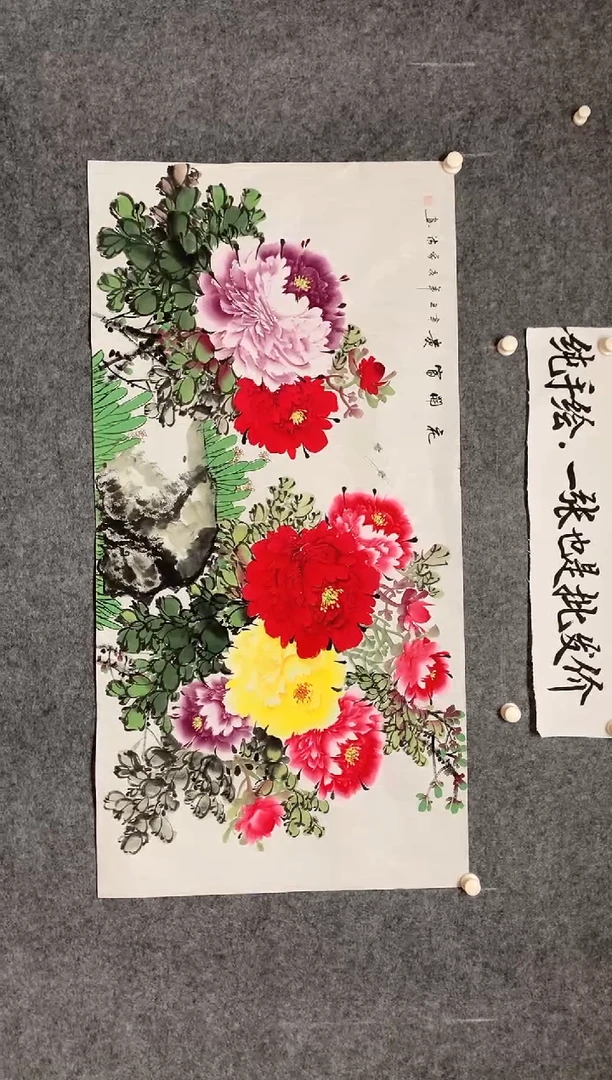 花開富貴
辛丑年
纯手绘.一张也是批发价